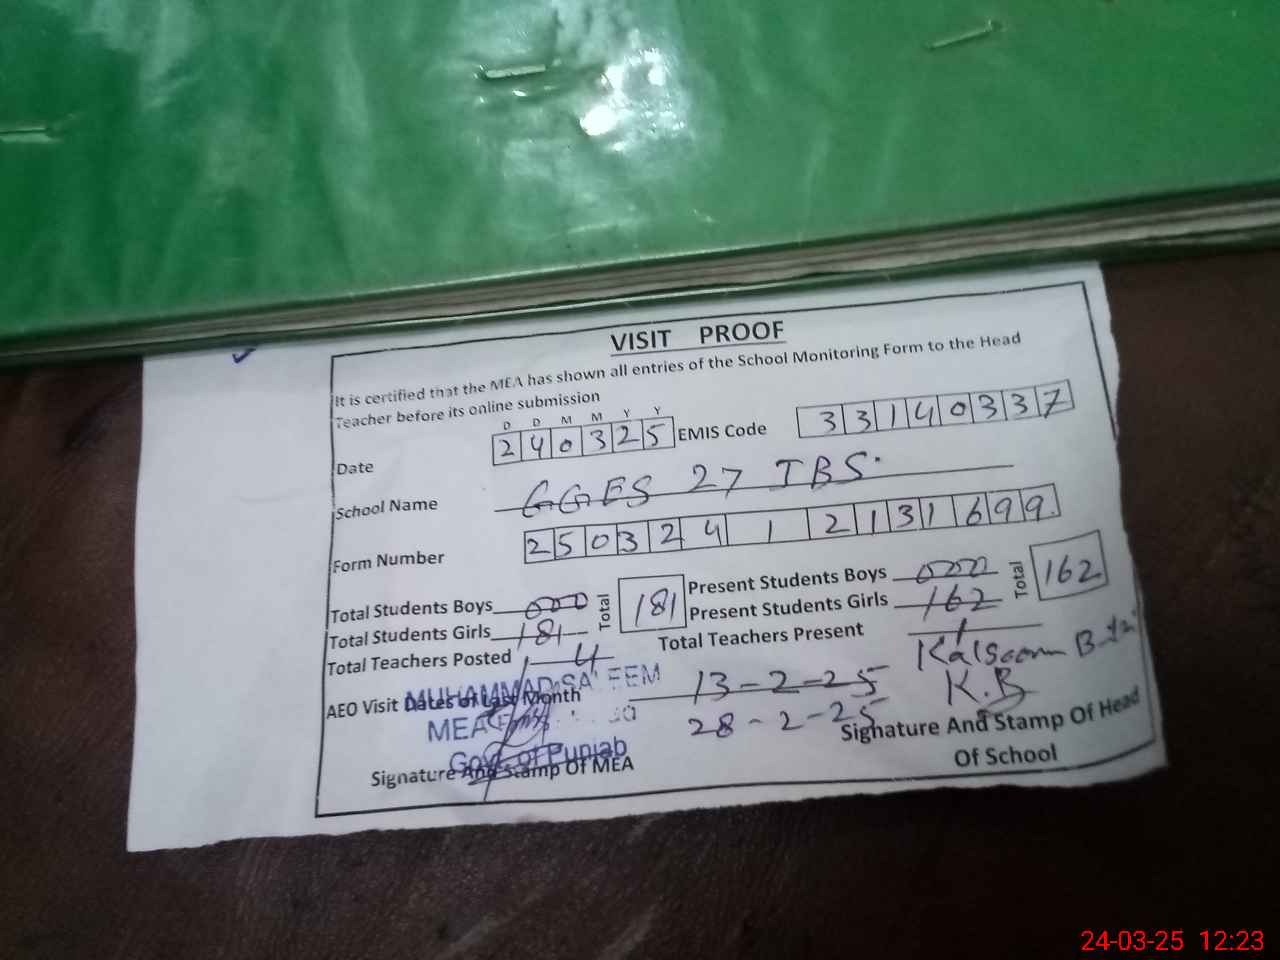 VISIT PROOF
It is certified that the MEA has shown all entries of the School Monitoring Form to the Head
Teacher before its online submission
D D M M Y Y
Date 240325 EMIS Code 33140337
School Name GGES 27 JBS.
Form Number 25032412131699
Total Students Boys 000 Total 181 Present Students Boys 000 Total 162
Total Students Girls 181 Present Students Girls 162
Total Teachers Posted 4 Total Teachers Present 1
Kalsoom
AEO Visit Dates of Last Month 13-2-25 K.B
28-2-25
MUHAMMAD SA EEM
MEA
Govt. of Punjab
Signature And Stamp Of MEA
Signature And Stamp Of Head
Of School
24-03-25 12:23